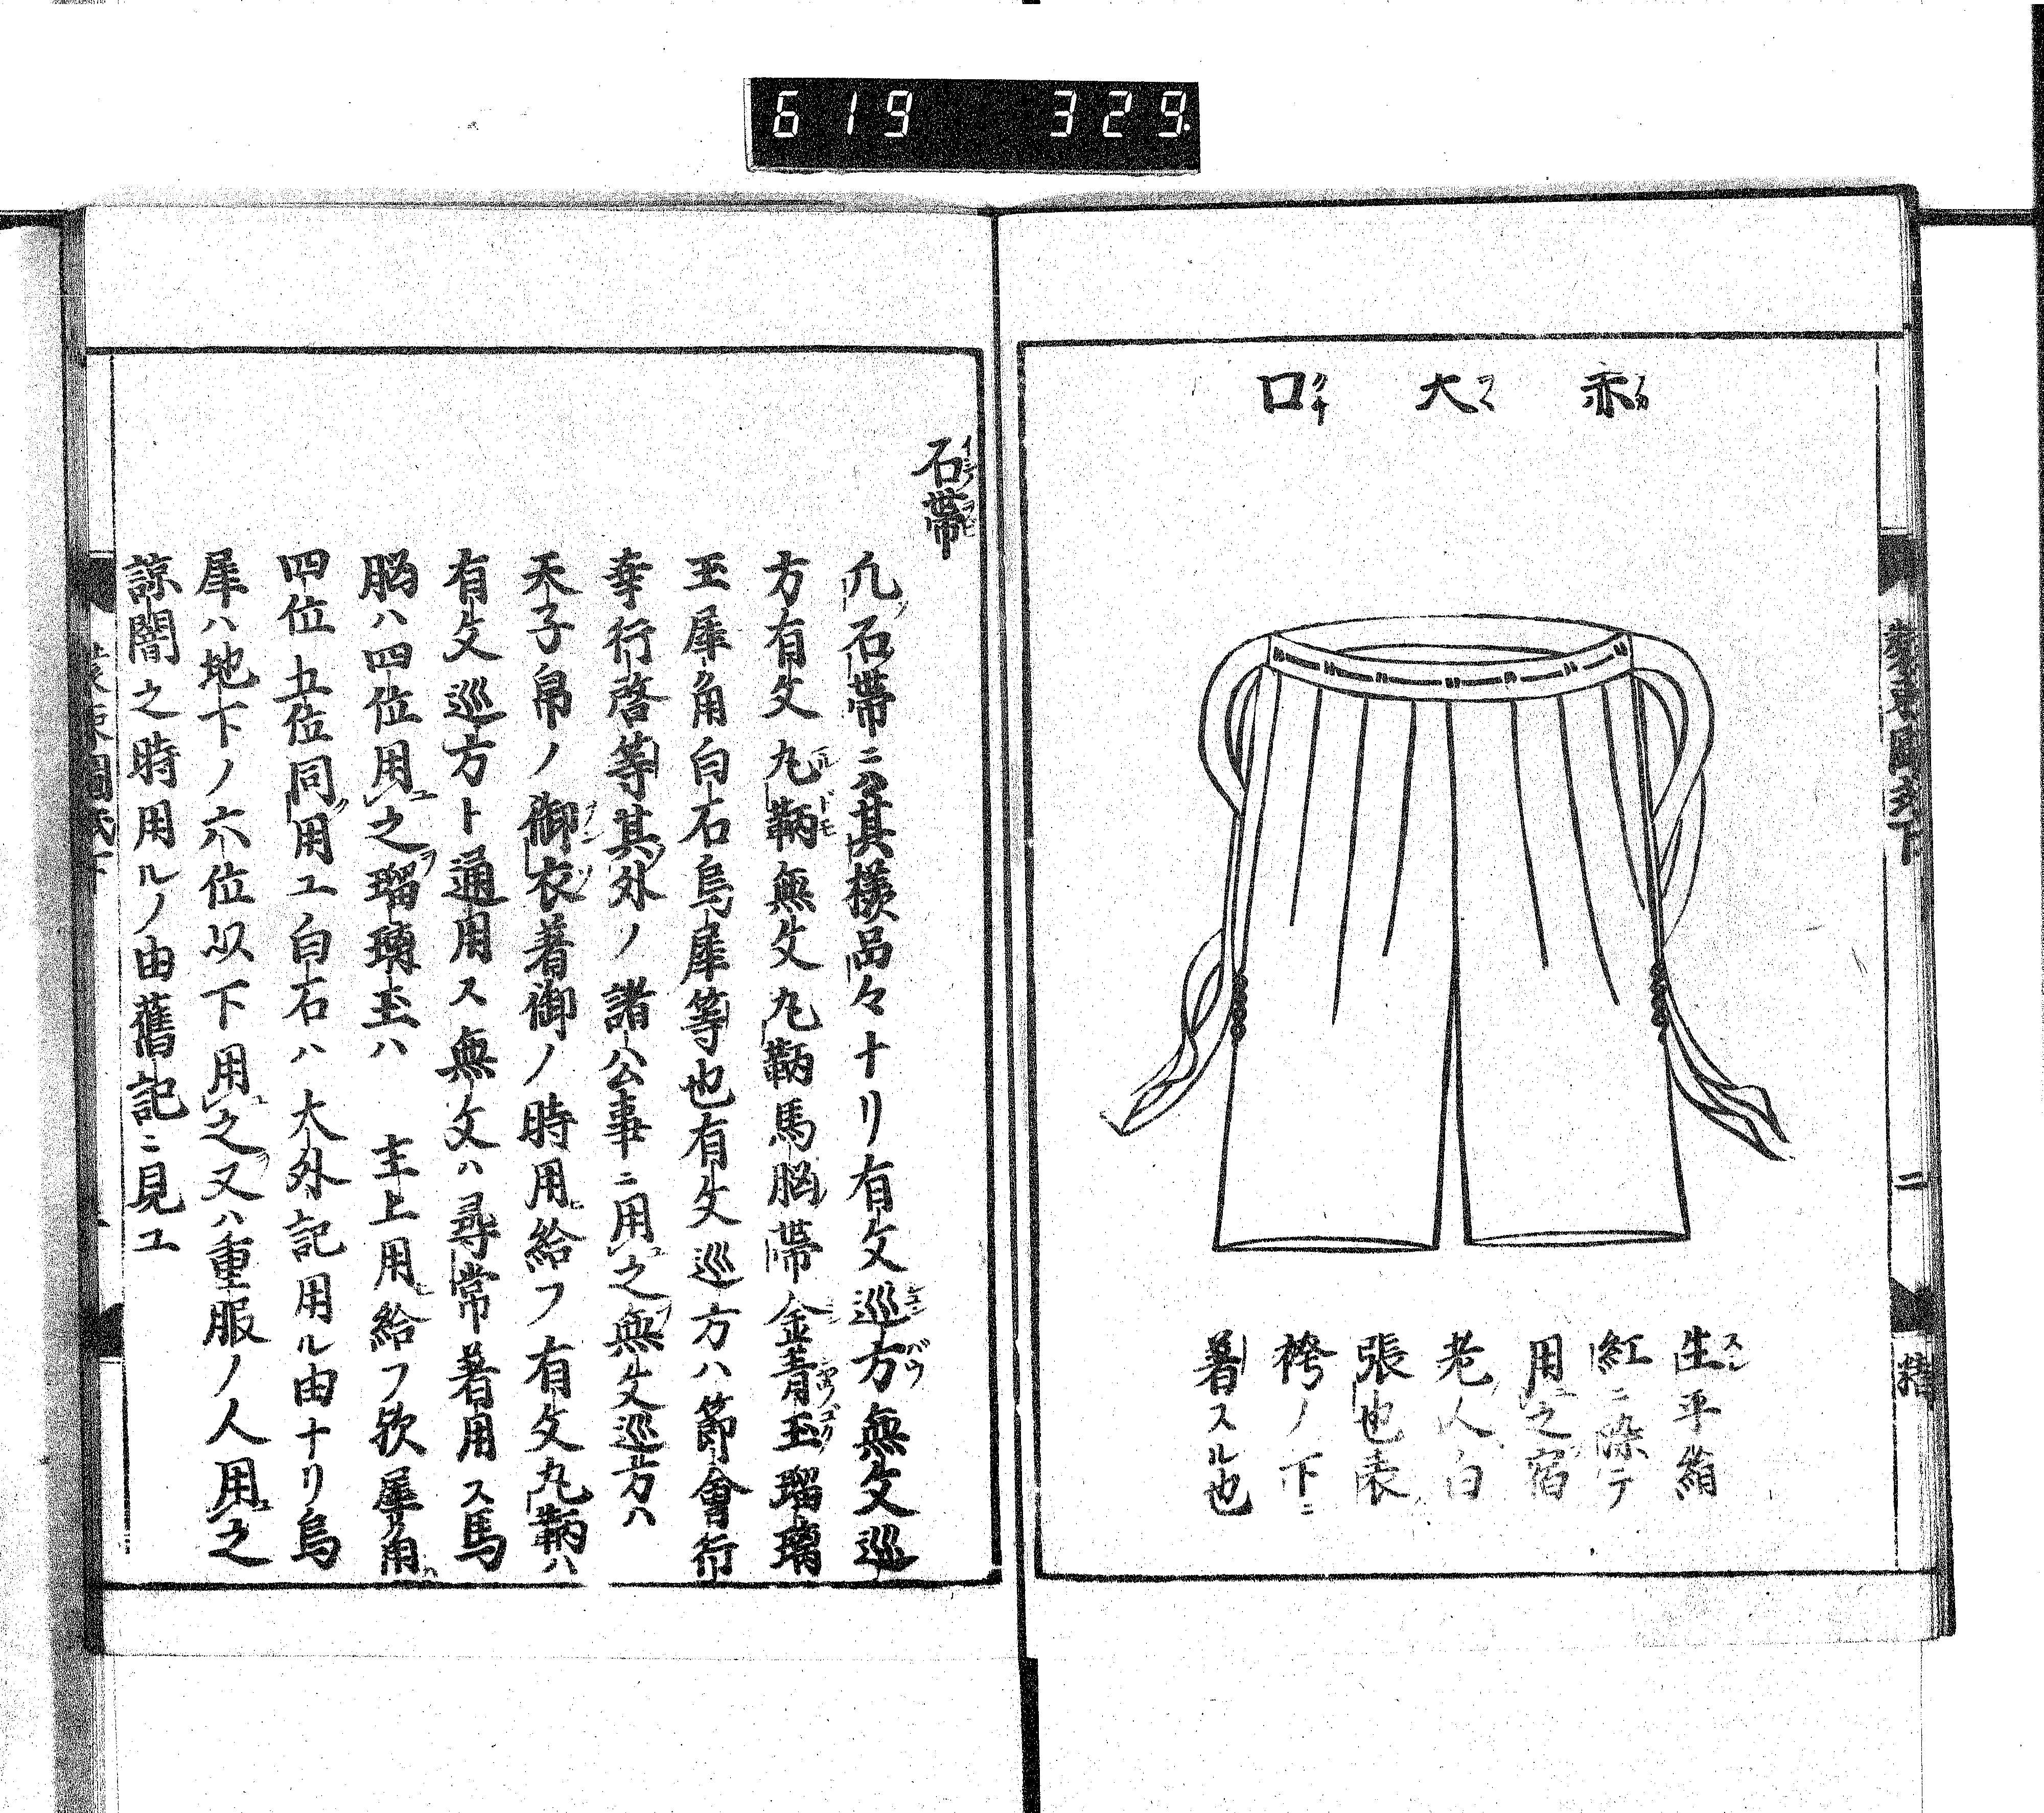 619 329
赤大口
生平絹
紅ニ染テ
用之宿
老人白
張也表
袴ノ下ニ
着スル也
二
石帯
凡石帯ニ其様品々ナリ有文巡方無文巡
方有文丸鞆無文丸鞆馬脳帯金青玉瑠璃
玉犀角白石烏犀等也有文巡方ハ節會行
幸行啓等其外ノ諸公事ニ用之無文巡方ハ
天子帛ノ御衣着御ノ時用給フ有文丸鞆ハ
有文巡方ト通用ス無文ハ尋常着用ス馬
脳ハ四位用之瑠璃玉ハ 主上用給フ欤犀角ハ
四位五位同用ユ白石ハ大外記用ル由ナリ烏
犀ハ地下ノ六位以下用之又ハ重服ノ人用之
諒闇之時用ルノ由舊記ニ見ユ